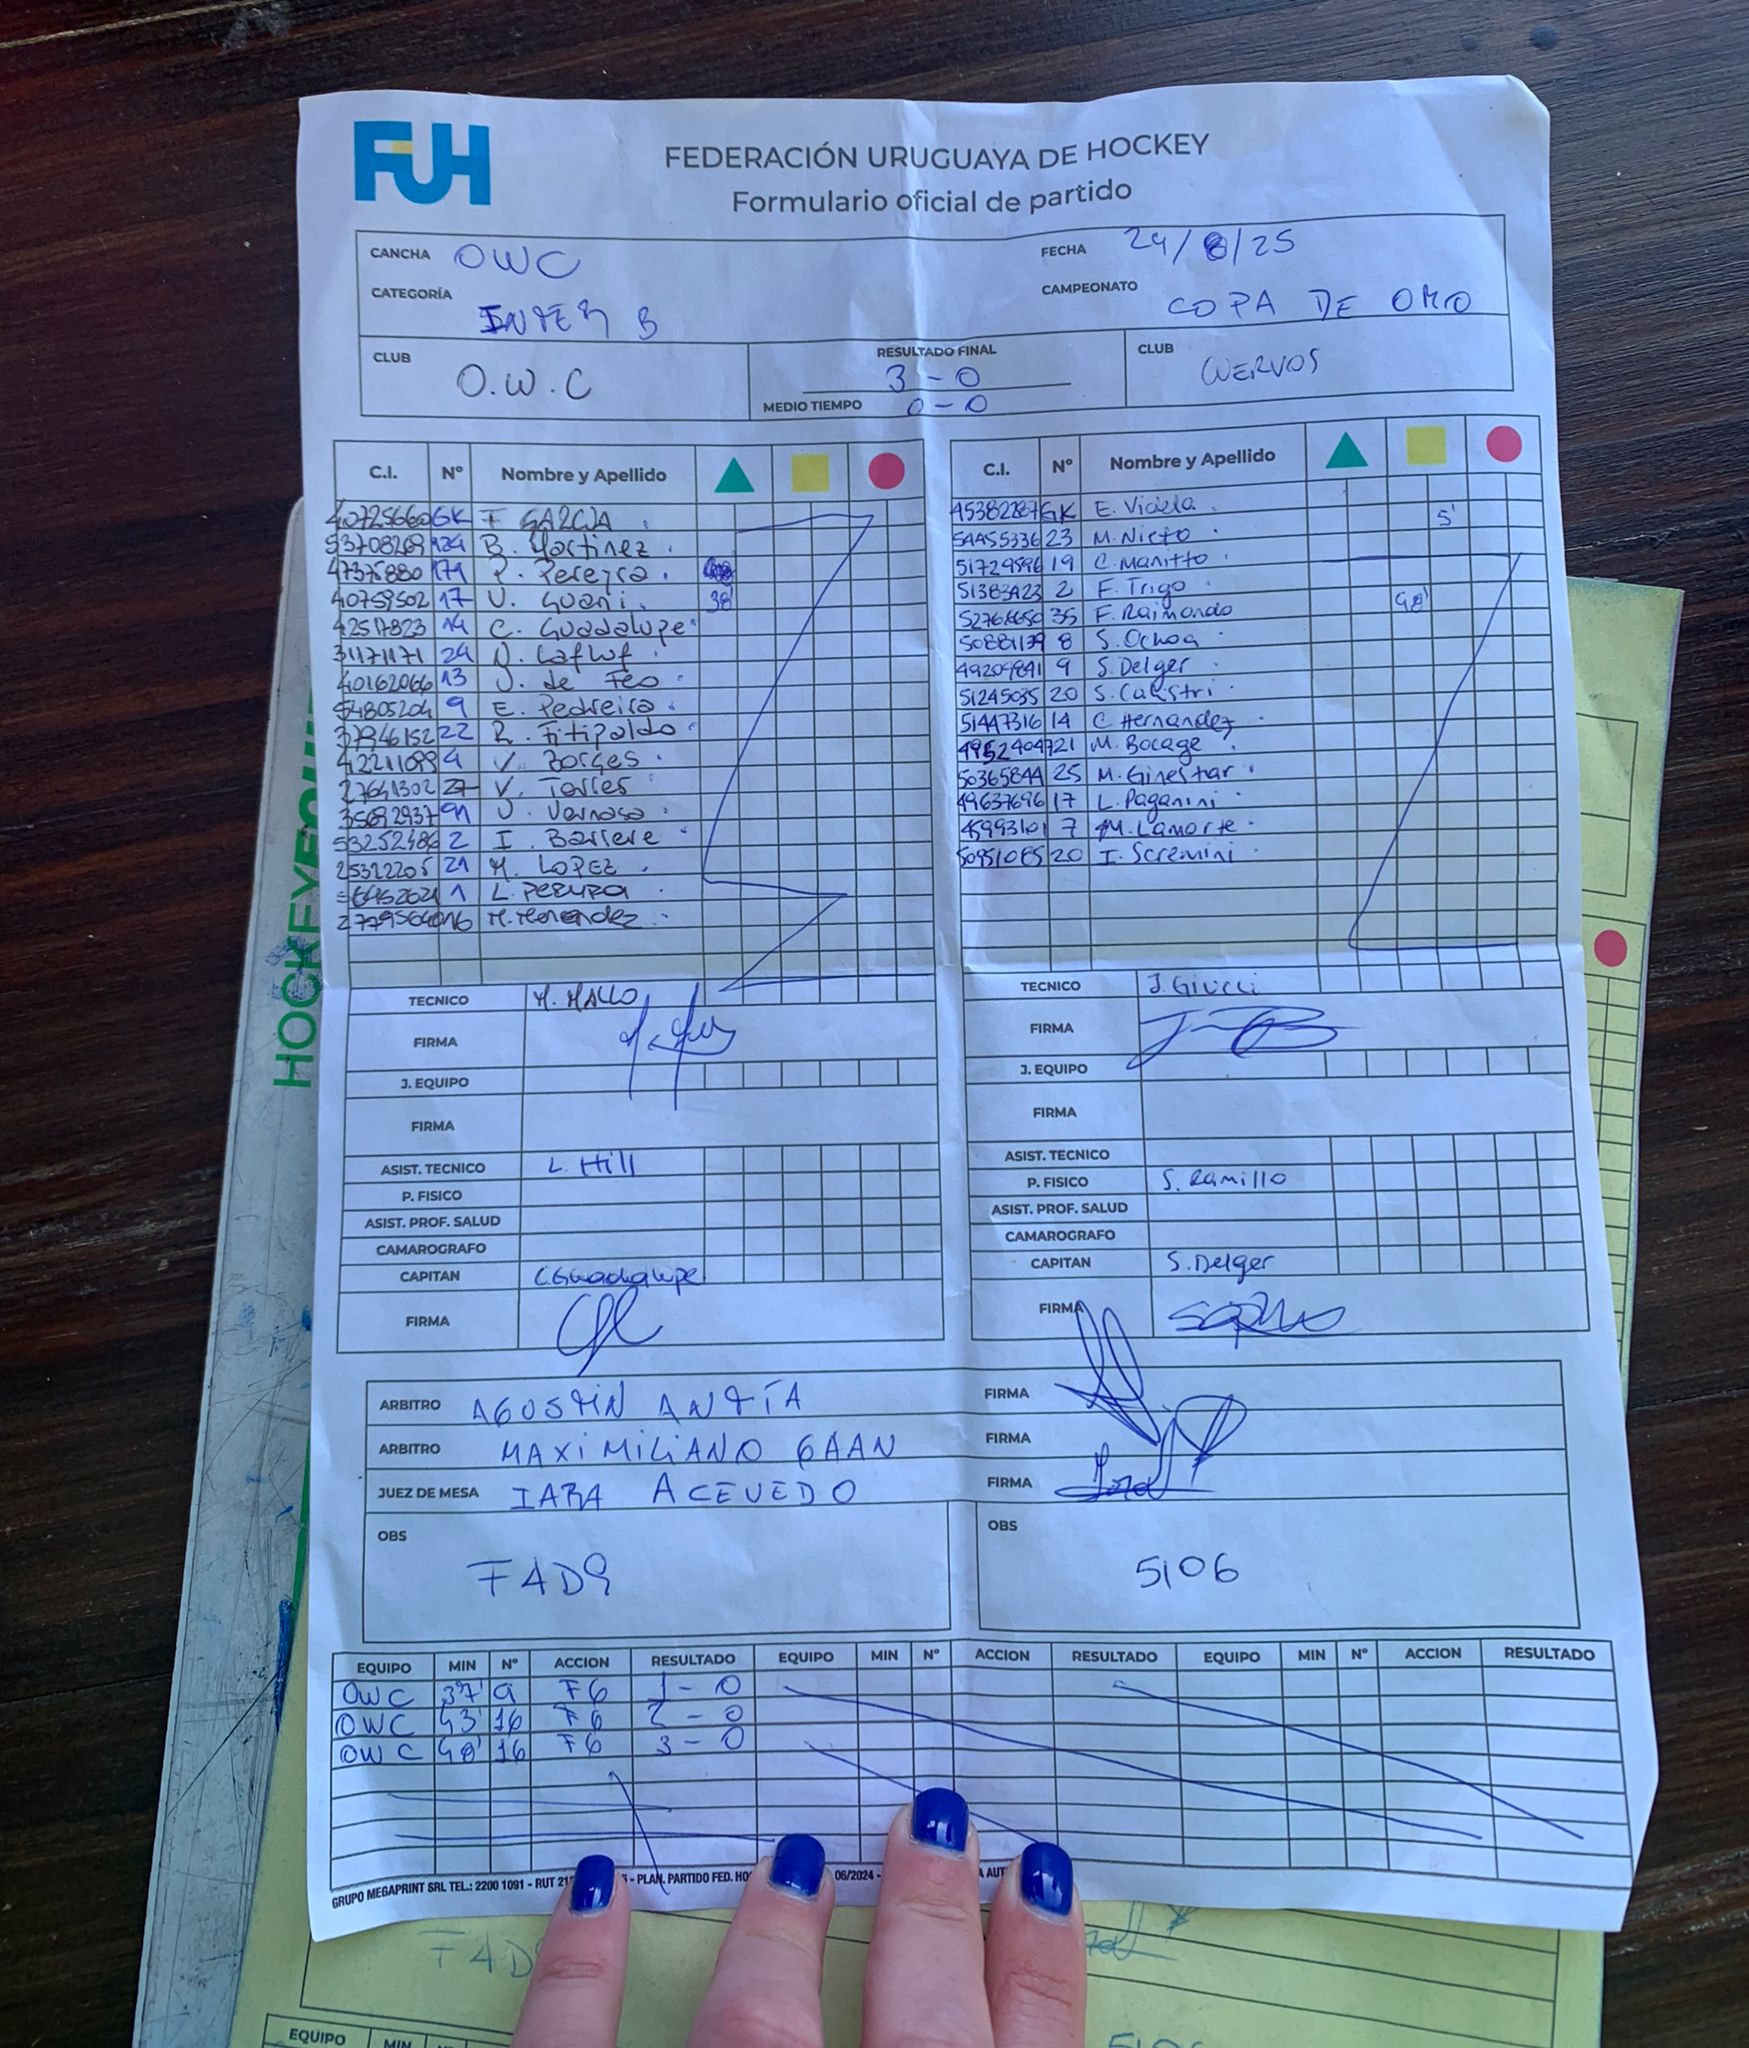 FUH
FEDERACIÓN URUGUAYA DE HOCKEY
Formulario oficial de partido
CANCHA OWC
FECHA 24/8/25
CATEGORÍA INTER B
CAMPEONATO COPA DE ORO
CLUB O.W.C
RESULTADO FINAL 3-0
MEDIO TIEMPO 0-0
CLUB CUERVOS
C.I. Nº Nombre y Apellido
GK F GARCIA
B. Martinez
P. Pereyra
40759502 17 V. Guani 38'
42517823 14 C. Guadalupe
31171171 24
40162066 13 J. de Feo
54805204 9 E. Pedreira
37946152 22 R. Fitipaldo
V. Borges
27641302 27 V. Torres
I. Barrere
25322205 21 M. LOPEZ
1 L. PEREYRA
16 M. Menendez
C.I. Nº Nombre y Apellido
45382287 GK E. Videla 5'
54455336 23 M. Nieto
19 C. Manitto
51383423 2 F. Trigo 48'
35 F. Raimondo
50881139 8 S. Ochoa
49209841 9 S. Delger
51245035 20 S. Calistri
51447316 14 C. Hernandez
21 M. Bocage
50365844 25 M. Ginestar
49637696 17 L. Paganini
7 M. Lamorte
50951085 20 I. Scremini
TECNICO M. MALLO
FIRMA
J. EQUIPO
FIRMA
ASIST. TECNICO L. Hill
P. FISICO
ASIST. PROF. SALUD
CAMAROGRAFO
CAPITAN C.Guadalupe
FIRMA
TECNICO J. Giucci
FIRMA
J. EQUIPO
FIRMA
ASIST. TECNICO
P. FISICO S. Ramillo
ASIST. PROF. SALUD
CAMAROGRAFO
CAPITAN S. Delger
FIRMA
ARBITRO AGUSTIN ANTÍA FIRMA
ARBITRO MAXIMILIANO GAAN FIRMA
JUEZ DE MESA IARA ACEVEDO FIRMA
OBS F4D9
OBS 5106
EQUIPO MIN Nº ACCION RESULTADO EQUIPO MIN Nº ACCION RESULTADO EQUIPO MIN Nº ACCION RESULTADO
OWC 37' 9 FG 1-0
OWC 43' 16 FG 2-0
OWC 48' 16 FG 3-0
GRUPO MEGAPRINT SRL TEL.: 2200 1091 - RUT - PLAN. PARTIDO FED. 06/2024 -
EQUIPO MIN
5106